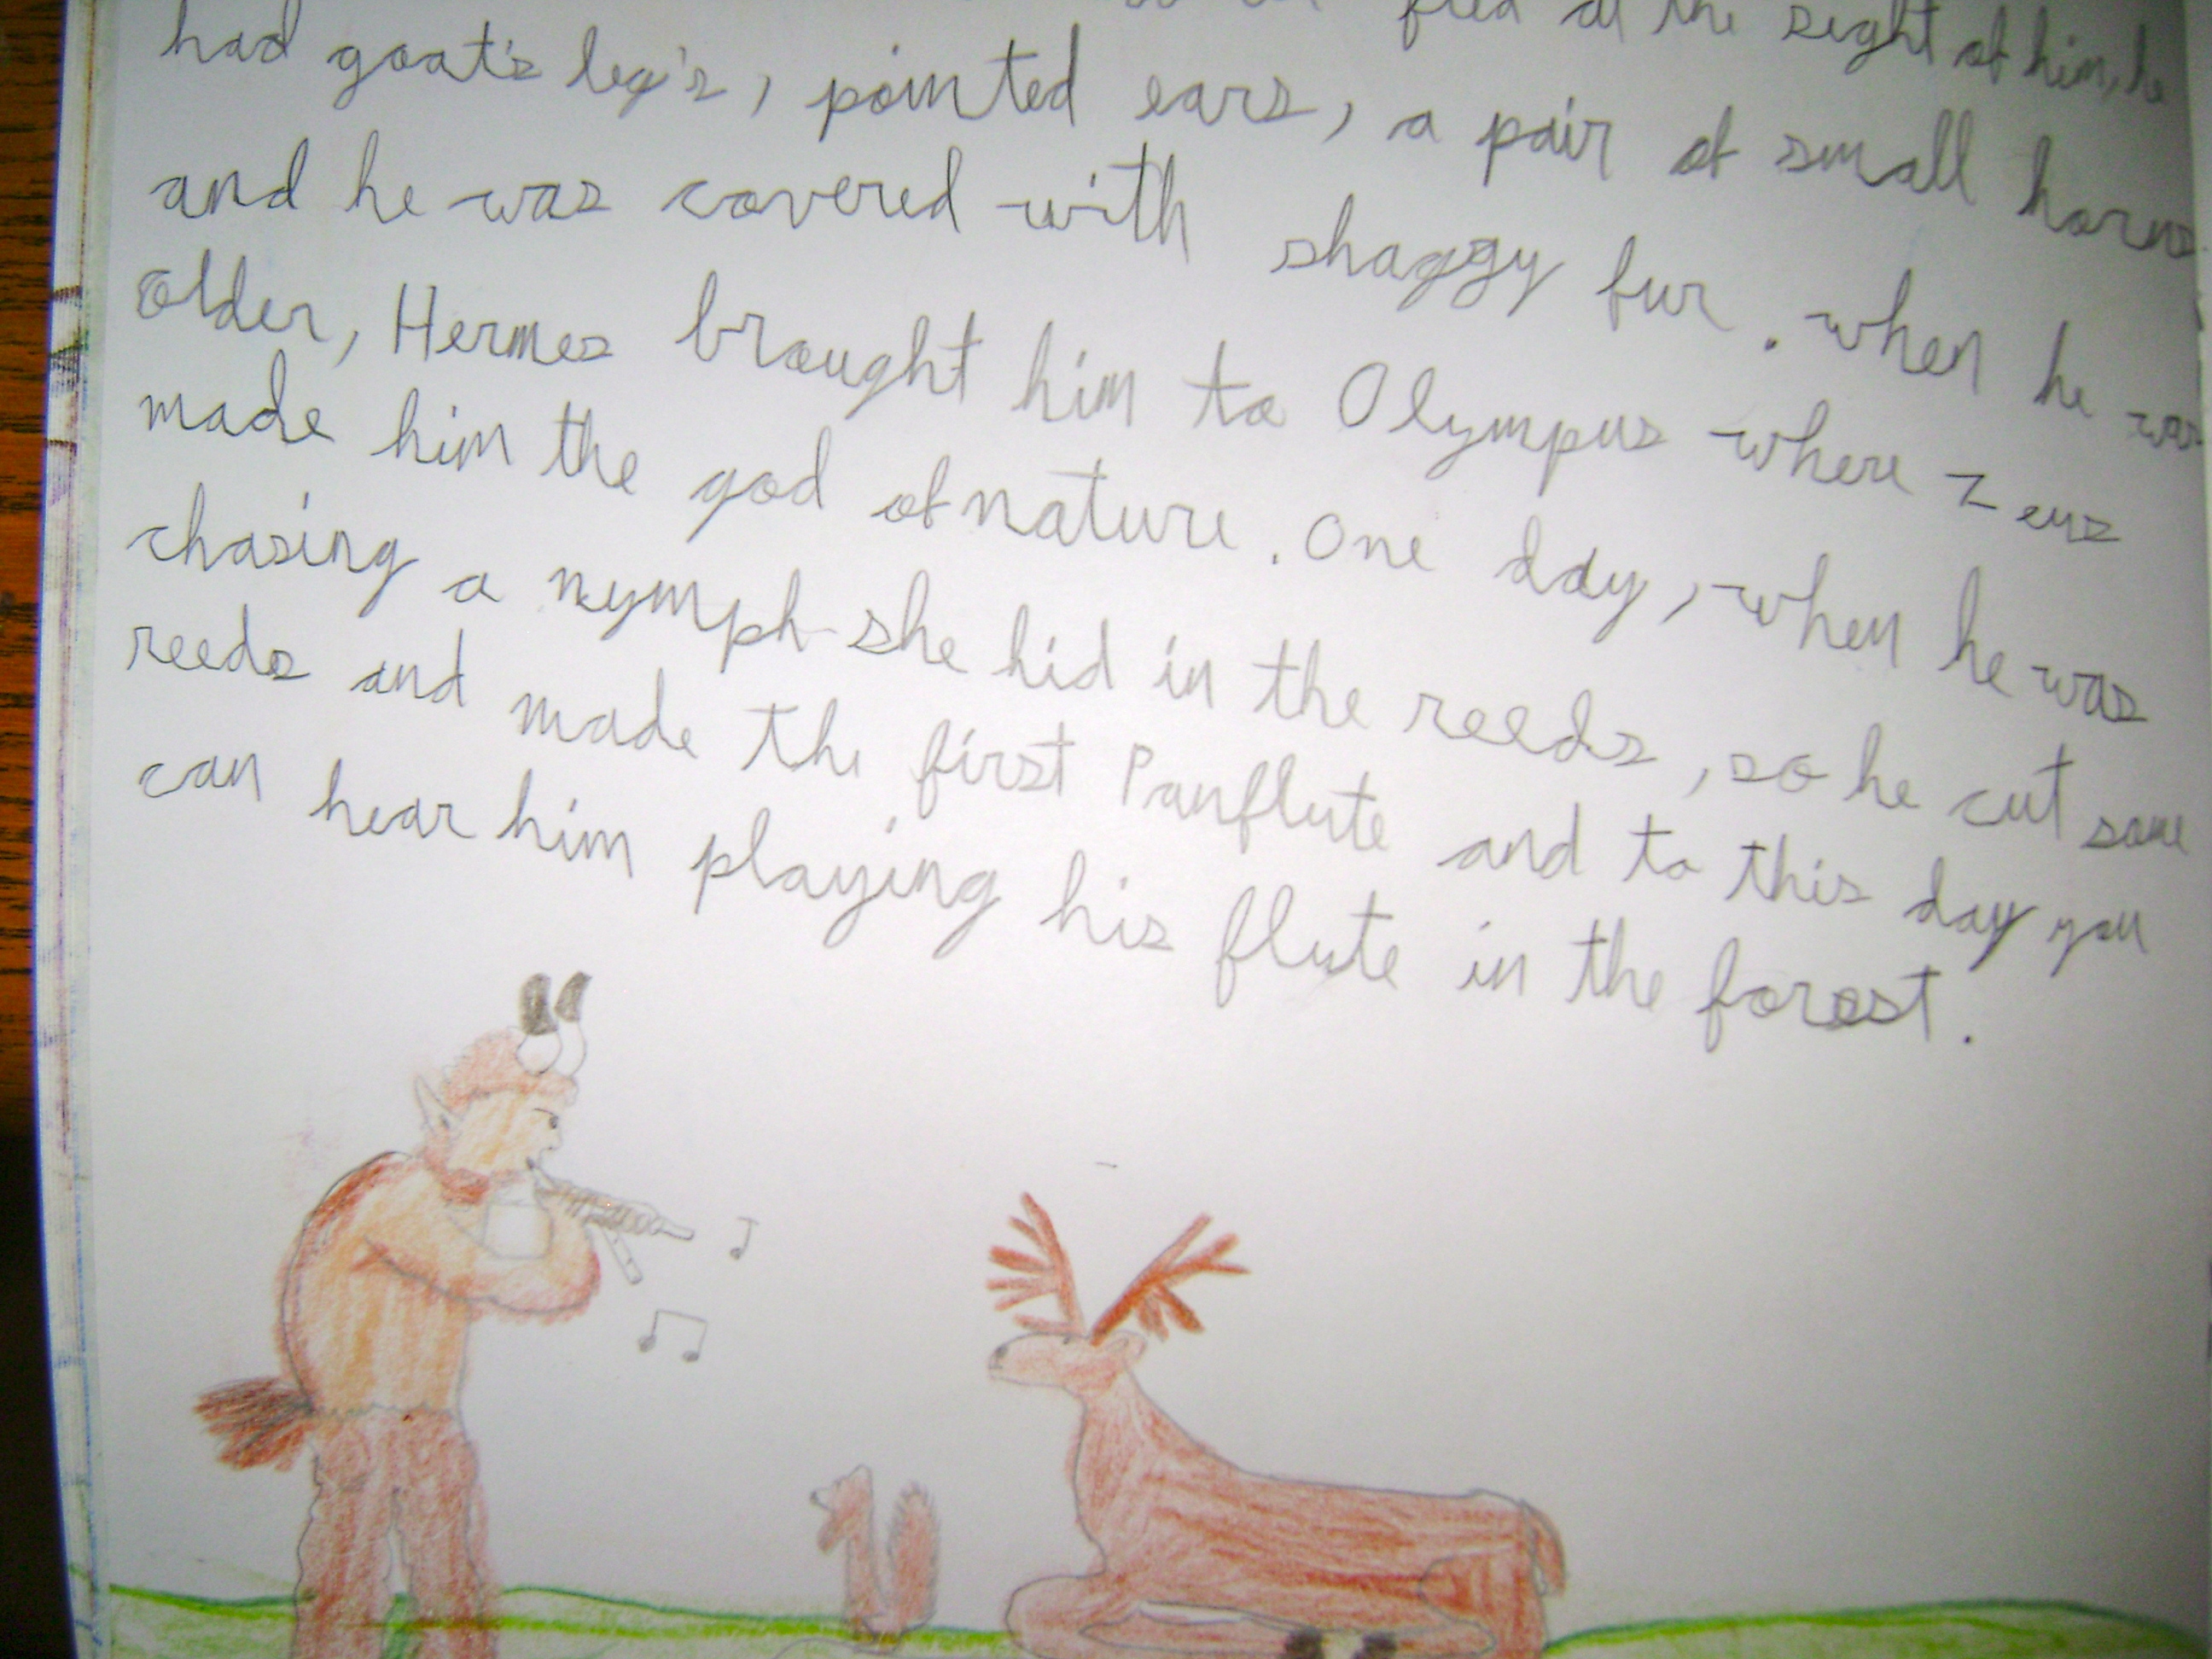 fled at the sight of him, he
had goat's leg's, pointed ears, a pair of small horns
and he was covered with shaggy fur. when he was
older, Hermes brought him to Olympus where Zeus
made him the god of nature. One day, when he was
chasing a nymph she hid in the reeds, so he cut some
reeds and made the first Panflute and to this day you
can hear him playing his flute in the forest.